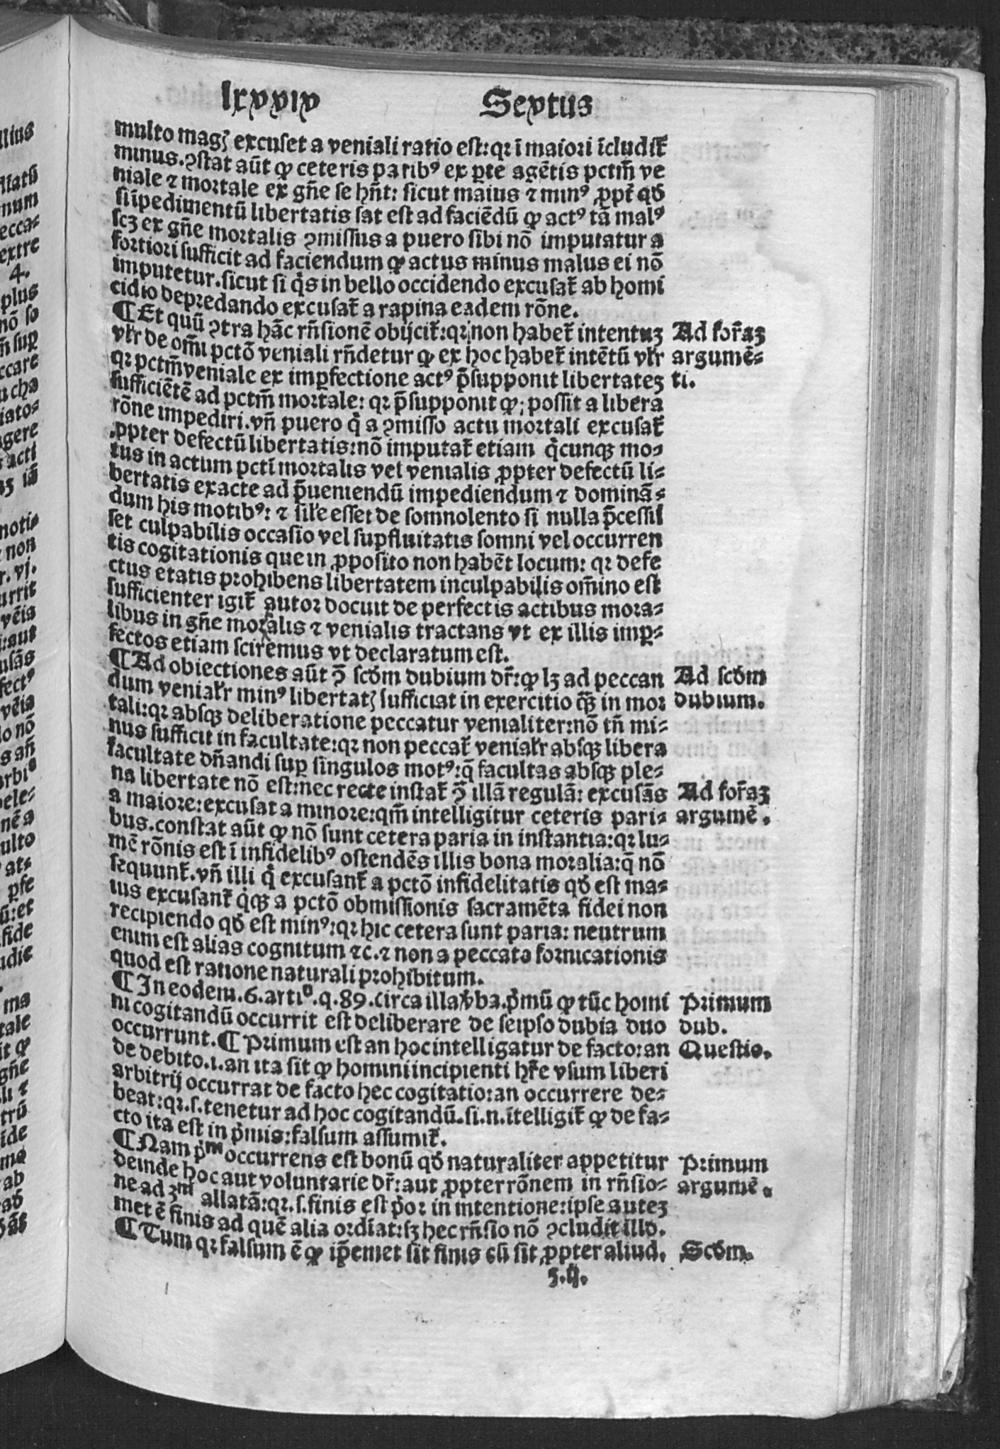 lxxxix Sextus
multo magꝭ excuset a veniali ratio est: qꝛ ī maiori īcludiť
minus. ꝯstat aūt ꝙ ceteris paribꝰ ex pte agētis pctm̄ ve
niale ⁊ mortale ex gn̄e se hn̄t: sicut maius ⁊ minꝰ ꝓpt̄ qd̄
si īpedimentū libertatis sat est ad faciēdū ꝙ actꝰ tā malꝰ
scꝫ ex gn̄e mortalis ꝯmissus a puero sibi nō imputatur a
fortiori sufficit ad faciendum ꝙ actus minus malus ei nō
imputetur. sicut si q̄s in bello occidendo excusat̄ ab homi
cidio depredando excusat̄ a rapina eadem rōne.
¶ Et quū ꝯtra hāc rn̄sionē obijcit̄: qꝛ non habet̄ intentuꝫ
Ad forāꝫ
vlr̄ de om̄i pctō veniali rn̄detur ꝙ ex hoc habet̄ intētū vlr̄
argumē⸗
qꝛ pctm̄ veniale ex imꝑfectione actꝰ p̄supponit libertateꝫ
ti.
sufficiētē ad pctm̄ mortale: qꝛ p̄supponit ꝙ; possit a libera
rōne impediri. vn̄ puero q̄ a ꝯmisso actu mortali excusat̄
ꝓpter defectū libertatis: nō imputat̄ etiam q̄cunqꝫ mo⸗
tus in actum pcti mortalis vel venialis ꝓpter defectū li⸗
bertatis exacte ad p̄ueniendū impediendum ⁊ dominā⸗
dum his motibꝰ: ⁊ sil̄e esset de somnolento si nulla p̄cessis
set culpabilis occasio vel suꝑfluitatis somni vel occurren
tis cogitationis que in ꝓposito non habēt locum: qꝛ defe
ctus etatis prohibens libertatem inculpabilis om̄ino est
sufficienter igit̄ autor docuit de perfectis actibus mora⸗
libus in gn̄e moralis ⁊ venialis tractans vt ex illis imꝑ⸗
fectos etiam sciremus vt declaratum est.
¶ Ad obiectiones aūt ꝯ̄ scd̄m dubium dr̄: ꝙ lꝫ ad peccan
Ad scd̄m
dum venialr̄ minꝰ libertatꝭ sufficiat in exercitio qꝫ̄ in mor
dubium.
tali: qꝛ absqꝫ deliberatione peccatur venialiter: nō tn̄ mi⸗
nus sufficit in facultate: qꝛ non peccat̄ venialr̄ absqꝫ libera
facultate dn̄andi suꝑ singulos motꝰ: q̄ facultas absqꝫ ple⸗
na libertate nō est: nec recte instat̄ ꝯ̄ illā regulā: excusās
Ad forāꝫ
a maiore: excusat a minore: qm̄ intelligitur ceteris pari⸗
argumē.
bus. constat aūt ꝙ nō sunt cetera paria in instantia: qꝛ lu⸗
mē rōnis est ī infidelibꝰ ostendēs illis bona moralia: q̄ nō
sequunt̄. vn̄ illi q̄ excusant̄ a pctō infidelitatis qd̄ est ma⸗
ius excusant̄ q̄qꝫ a pctō obmissionis sacramēta fidei non
recipiendo qd̄ est minꝰ: qꝛ hic cetera sunt paria: neutrum
enim est alias cognitum ⁊c. ⁊ non a peccato fornicationis
quod est ratione naturali prohibitum.
¶ In eodem. 6. artiº. q. 89. circa illa v̄ba. p̄mū ꝙ tūc homi
Primum
ni cogitandū occurrit est deliberare de seipso dubia duo
dub.
occurrunt. ¶ Primum est an hoc intelligatur de facto: an
Questio.
de debito. i. an ita sit ꝙ homini incipienti hr̄e vsum liberi
arbitrij occurrat de facto hec cogitatio: an occurrere de⸗
beat: qꝛ. s. tenetur ad hoc cogitandū. si. n. ītelligit̄ ꝙ de fa⸗
cto ita est in p̄mis: falsum assumit̄.
¶ Nam pᵐ occurrens est bonū qd̄ naturaliter appetitur
Primum
deinde hoc aut voluntarie dr̄: aut ꝓpter rōnem in rn̄sio⸗
argumē.
ne ad ꝫᵐ allatā: qꝛ. s. finis est p̄or in intentione: ipse auteꝫ
met ē finis ad quē alia ordīat: sꝫ hec rn̄sio nō ꝯcludit illo.
¶ Tum qꝛ falsum ē ꝙ ip̄emet sit finis cū sit ꝓpter aliud.
Scd̄m.
ꝫ. ij.